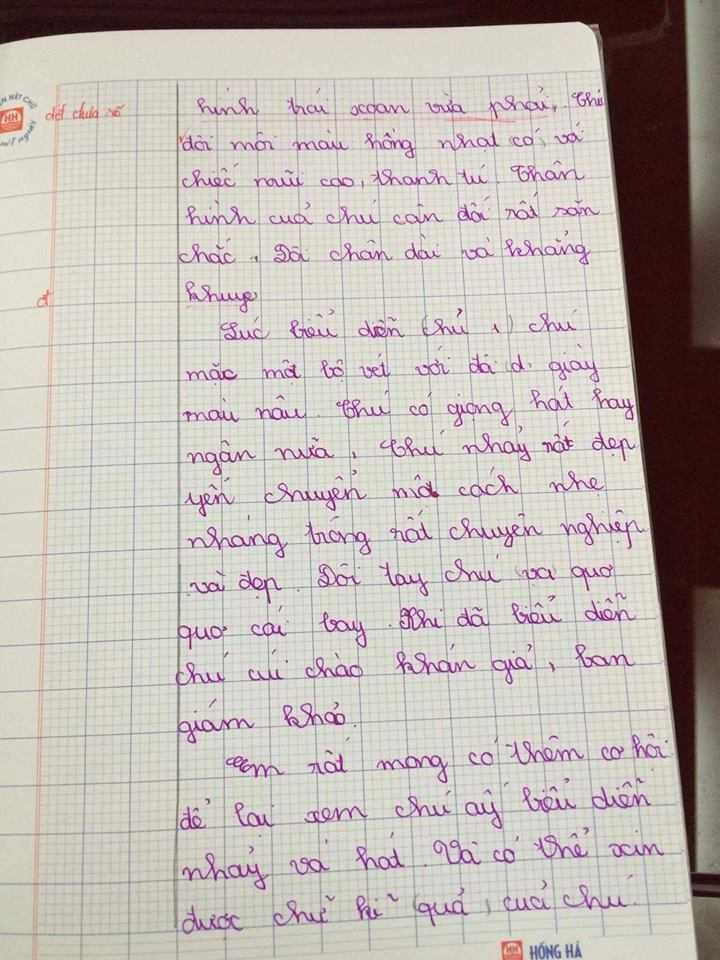 đề chưa rõ
hình trái xoan vừa phải, Chú
đôi môi màu hồng nhạt có, và
chiếc mũi cao, thanh tú. Thân
hình cuả chú cân đối rất săn
chắc. Đôi chân dài và khẳng
khuye
đ
Lúc biểu diễn (chú 1) chú
mặc một bộ vét với đôi giày
màu nâu. Chú có giọng hát hay
ngân nữa, Chú nhảy rất đẹp
yến chuyển một cách nhẹ
nhàng trông rất chuyên nghiệp
và đẹp. Đôi tay chú va quơ
quơ cái tay. Khi đã biểu diễn
chú cúi chào khán giả, ban
giám khảo.
Em rất mong có thêm cơ hôi
để lại xem chú aý biểu diễn
nhảy và hát. Và có thể xin
được chữ kí quả, cuả chú.
HH HỒNG HÀ